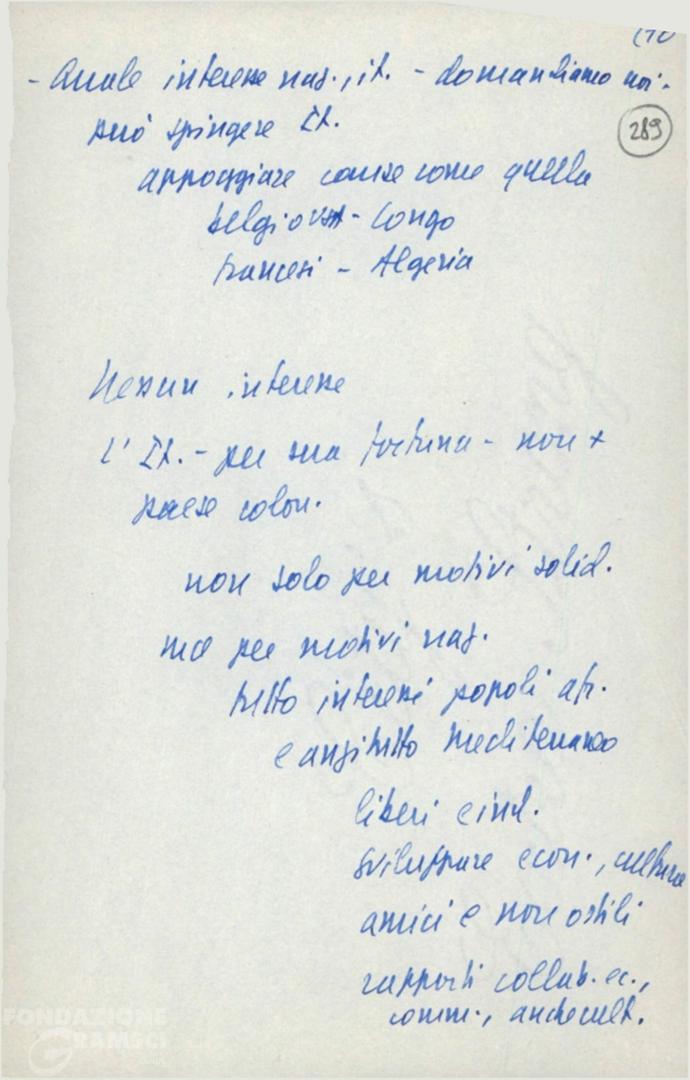 (10
289
- Quale interesse naz., it. - domandiamo noi -
può spingere It.
appoggiare cause come quella
belgio - Congo
francesi - Algeria
Nessun interesse
L' It. - per sua fortuna - non +
paese colon.
non solo per motivi solid.
ma per motivi naz.
tutto interessi popoli afr.
e anzitutto Mediterraneo
liberi e ind.
sviluppare econ., cultura
amici e non ostili
rapporti collab. ec.,
comm., anche cult.
FONDAZIONE
GRAMSCI